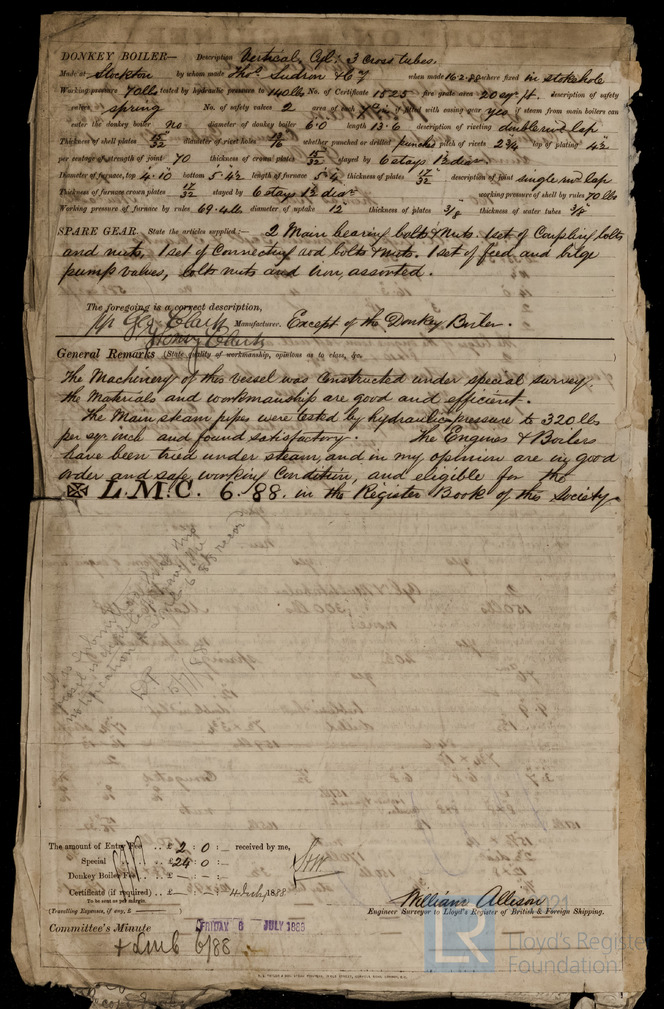 DONKEY BOILER— Description Vertical Cyl: 3 cross tubes.
Made at Stockton by whom made Thos. Sudron & Co when made 16.2.88 where fixed in stokehole
Working pressure 70 lbs tested by hydraulic pressure to 140 lbs No. of Certificate 1525 fire grate area 20 sq. ft. description of safety
valves spring No. of safety valves 2 area of each if fitted with easing gear yes if steam from main boilers can
enter the donkey boiler no diameter of donkey boiler 6.0 length 13.6 description of riveting double riv lap
Thickness of shell plates 15/32 diameter of rivet holes whether punched or drilled punched pitch of rivets 2 3/4 lap of plating 4 1/2
per centage of strength of joint 70 thickness of crown plates 15/32 stayed by 6 stays 1 1/2 diar.
Diameter of furnace, top 4.10 bottom 5.4 1/2 length of furnace 5.4 thickness of plates 17/32 description of joint single riv lap
Thickness of furnace crown plates 17/32 stayed by 6 stays 1 1/2 diar working pressure of shell by rules 70 lbs
Working pressure of furnace by rules 69.4 lbs diameter of uptake 12 thickness of plates 3/8 thickness of water tubes 3/8
SPARE GEAR. State the articles supplied:— 2 Main bearing bolts & nuts. 1 set of Coupling bolts
and nuts, 1 set of Connecting rod bolts & nuts. 1 set of feed and bilge
pump valves, bolts nuts and iron, assorted.
The foregoing is a correct description,
Geo Clark Manufacturer. Except of the Donkey Boiler.
Henry Clark
General Remarks (State quality of workmanship, opinions as to class, &c.
The Machinery of this vessel was Constructed under special survey,
the Materials and workmanship are good and efficient.
The Main steam pipes were tested by hydraulic pressure to 320 lbs
per sq. inch and found satisfactory. The Engines & Boilers
have been tried under steam, and in my opinion are in good
order and safe working Condition, and eligible for the
L.M.C. 6.88. in the Register Book of the Society
The amount of Entry Fee .. £ 2 : 0 : — received by me,
Special .. .. £ 24 : 0 : —
Donkey Boiler Fee .. £ — : — : —
Certificate (if required) .. £ — : 4 July 1888
To be sent as per margin.
(Travelling Expenses, if any, £
William Allison
Engineer Surveyor to Lloyd's Register of British & Foreign Shipping.
Committee's Minute FRIDAY 6 JULY 1888
+ LMC 6/88
LR
Lloyd's Register
Foundation